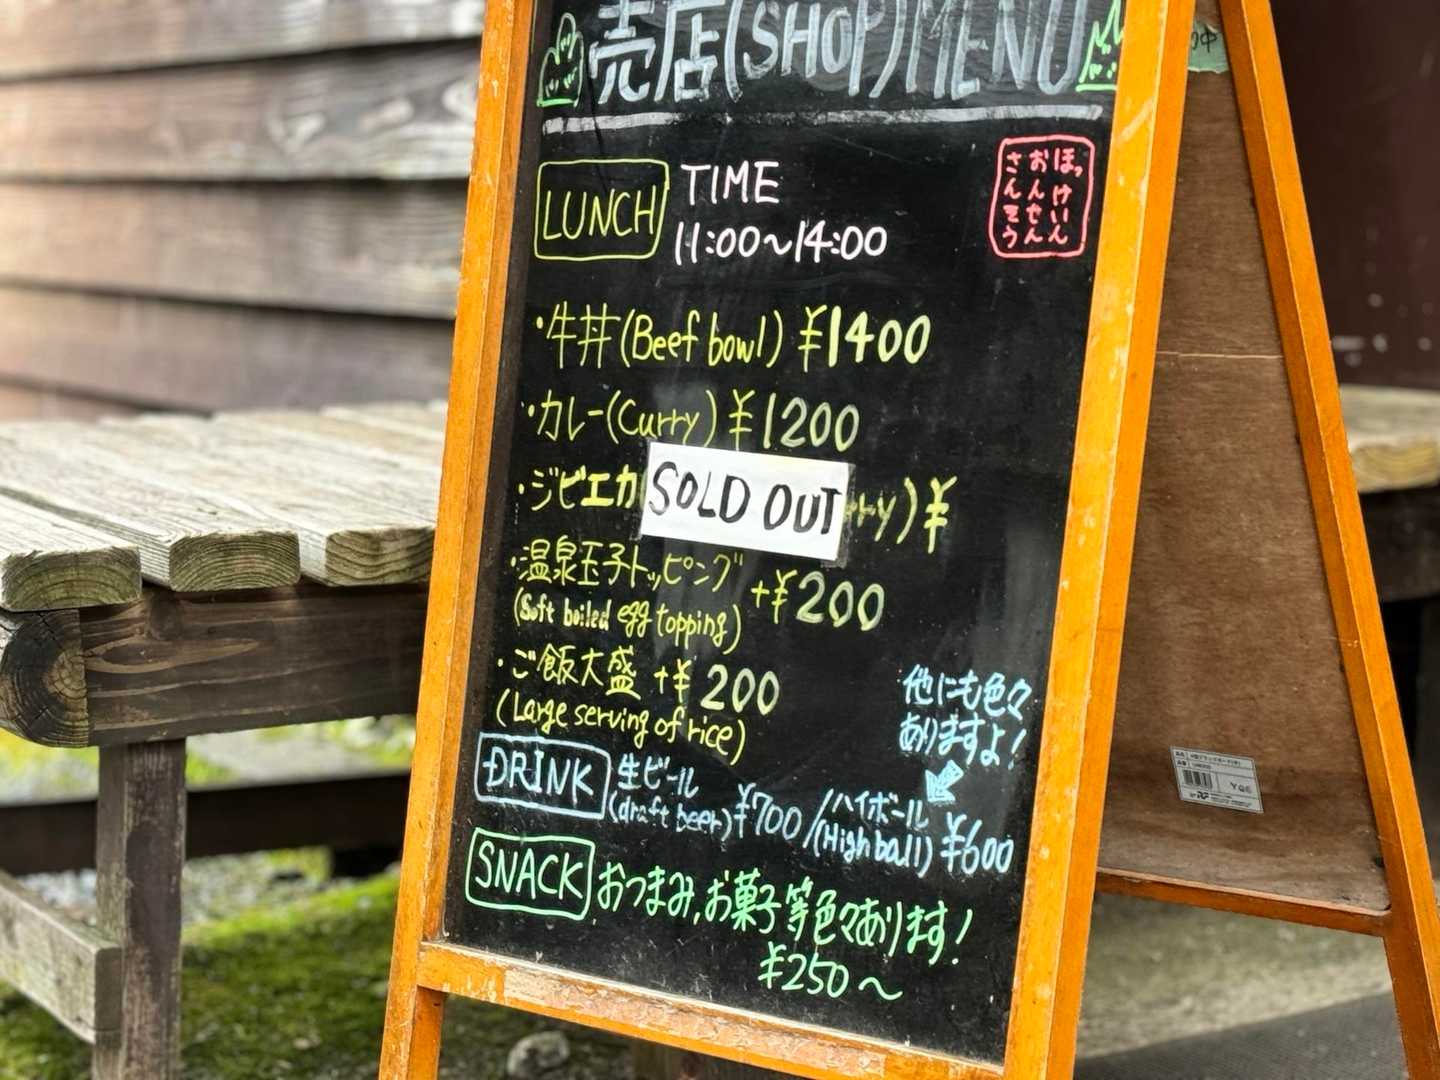 売店(SHOP)MENU
LUNCH TIME
11:00~14:00
ほっけいん
おんせん
さんそう
・牛丼(Beef bowl) ¥1400
・カレー(Curry) ¥1200
・ジビエカ SOLD OUT rry) ¥
・温泉玉子トッピング +¥200
(Soft boiled egg topping)
・ご飯大盛 +¥200
(Large serving of rice)
他にも色々
ありますよ!
DRINK 生ビール (draft beer) ¥700 / ハイボール (High ball) ¥600
SNACK おつまみ、お菓子等色々あります!
¥250~